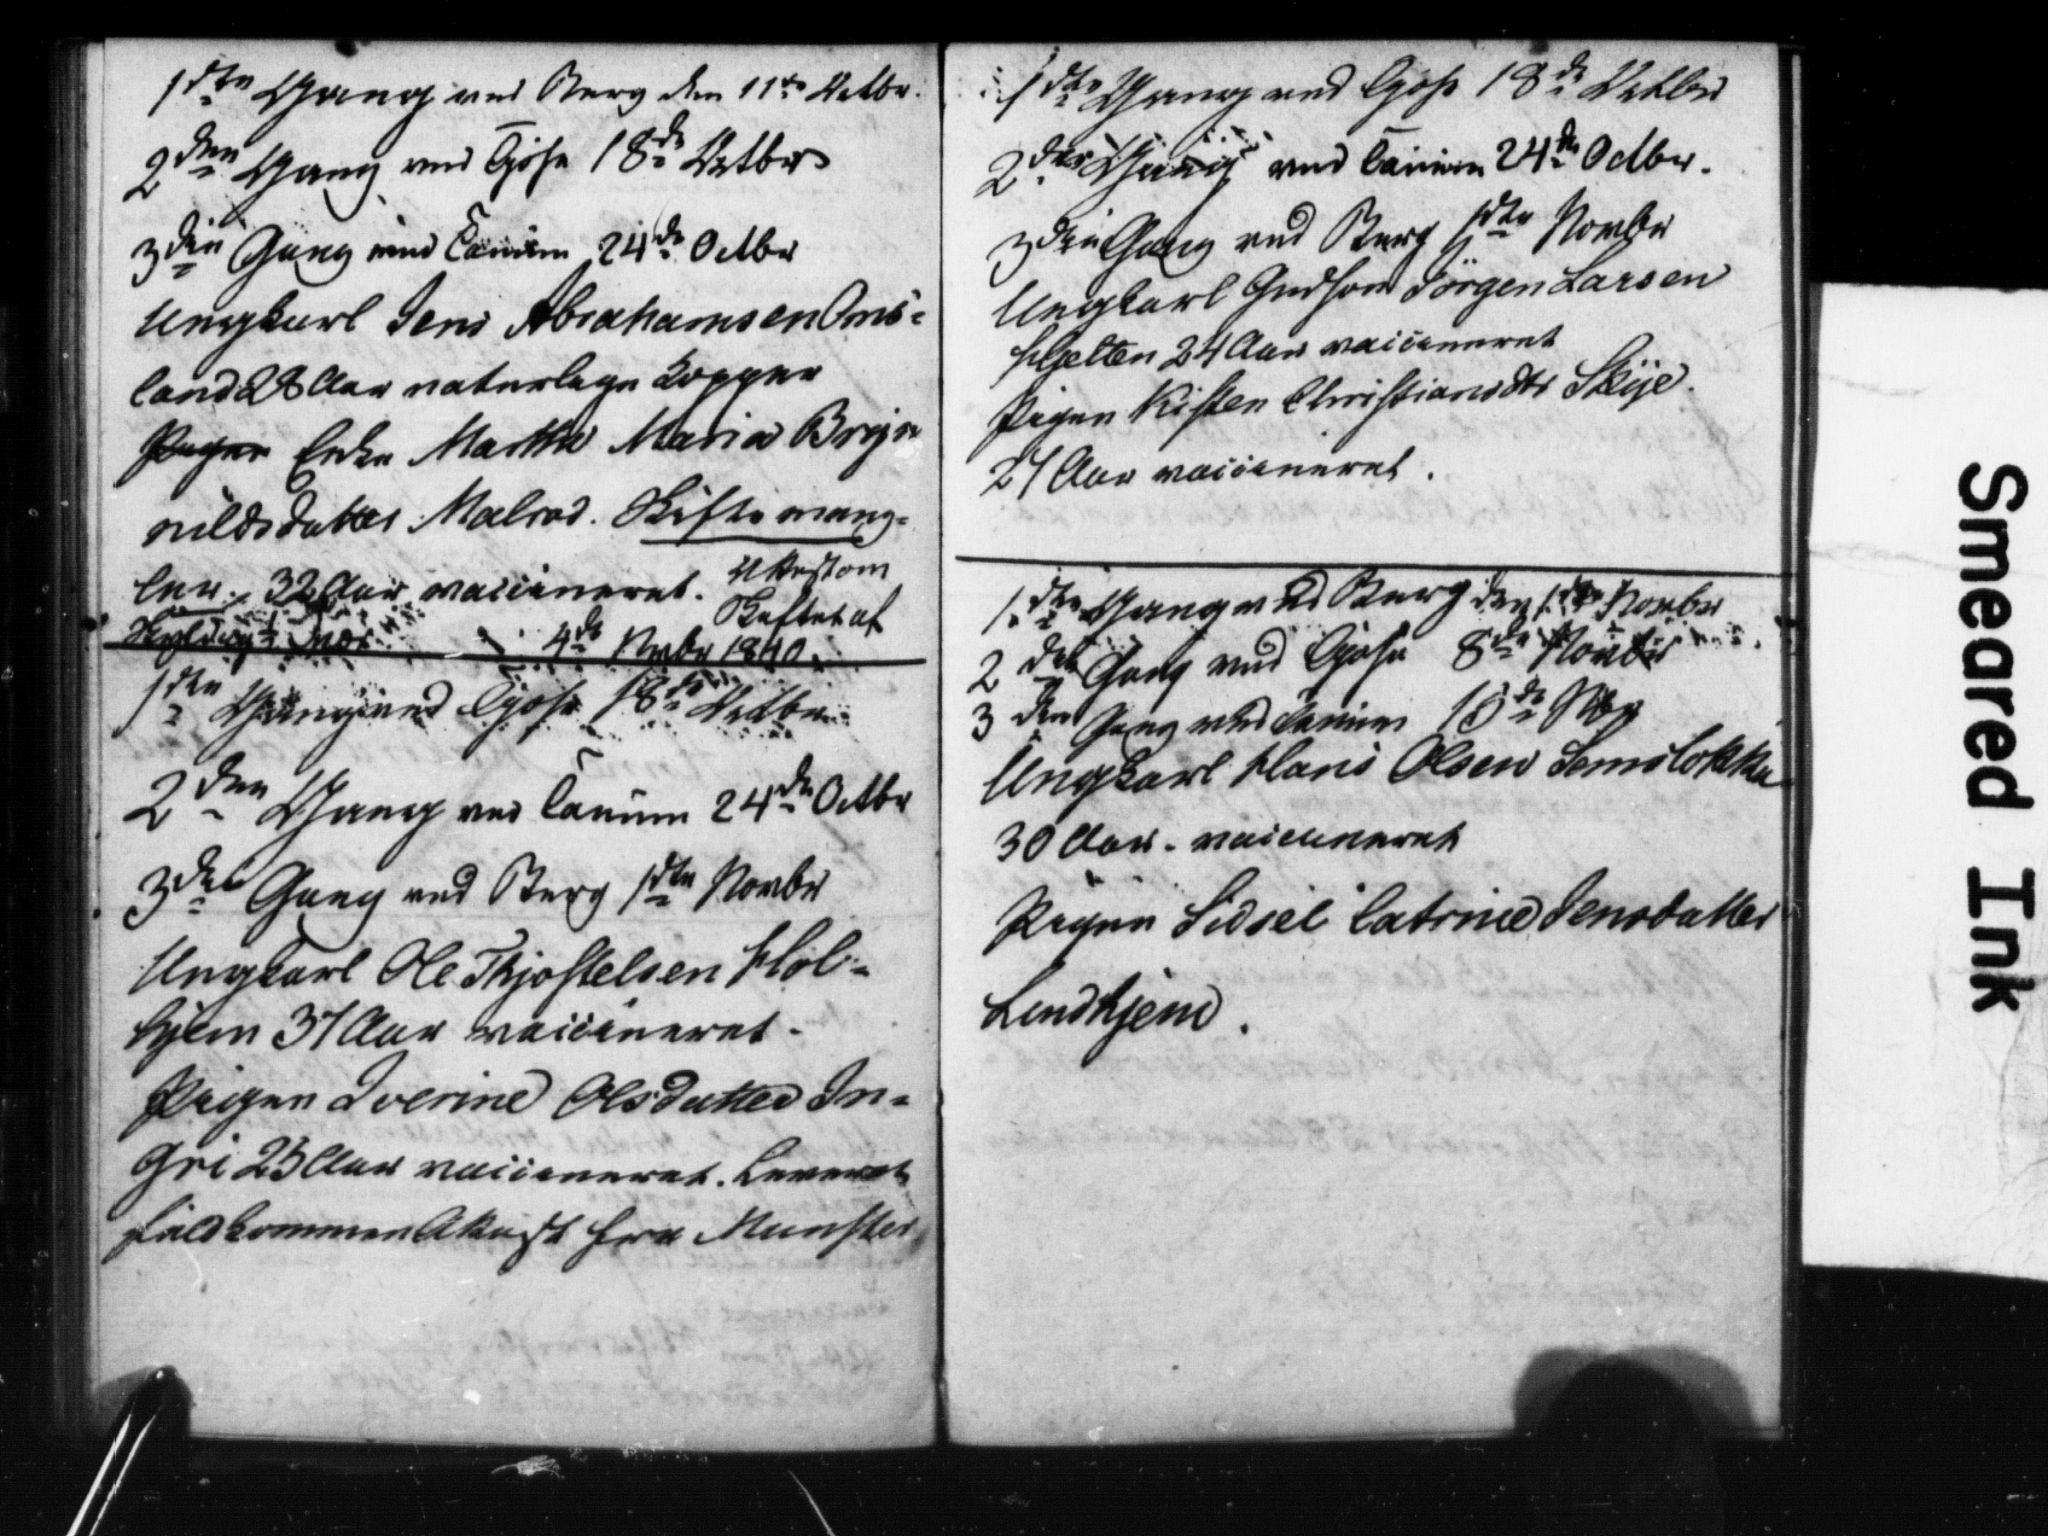 1ste Gang ved Berg den 11te Octbr.
2den Gang ved Tjøse 18de Octbr
3die Gang ved Tanum 24de Octbr
Ungkarl Jens Abrahamsen Oms-
land 28 Aar naturlige Kopper
Pigen Enke Martha Maria Bryn
nildsdatter Malerød. Skifte mang-
ler. 32 Aar vaccineret. Attest om
Skiftet af
4de Novbr 1840.
1ste Gang ved Tjøse 18de Octbr
2den Gang ved Tanum 24de Octbr
3die Gang ved Berg 1ste Novbr
Ungkarl Ole Thjostelsen Hol-
hjem 37 Aar vaccineret.
Pigen Iverine Olsdatter In-
gri 25 Aar vaccineret. Leveret
fra Munster
1ste Gang ved Tjøse 18de Octbr
2den Gang ved Tanum 24de Octbr.
3die Gang ved Berg 1ste Novbr
Ungkarl Gudson Jörgen Larsen
Hjelten 24 Aar vaccineret
Pigen Kisten Christiansdtr Skije.
27 Aar vaccineret.
1ste Gang ved Berg den 1ste Novbr
2den Gang ved Tjøse 8de Novbr
3die Gang ved Tanum 15de Nbr
Ungkarl Hans Olsen Semsløkka
30 Aar. vaccineret
Pigen Sidsel Catrine Jensdatter
Lindhjem.
Smeared Ink